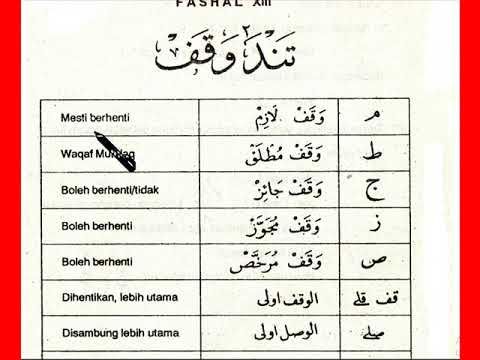 FASHAL XIII
تَنْدَ٢ وَقَفْ
Mesti berhenti وَقَفْ لَازِمْ م
Waqaf Mutlaq وَقَفْ مُطْلَقْ ط
Boleh berhenti/tidak وَقَفْ جَائِزْ ج
Boleh berhenti وَقَفْ مُجَوَّزْ ز
Boleh berhenti وَقَفْ مُرَخَّصْ ص
Dihentikan, lebih utama الوقف اولى قف قلے
Disambung lebih utama الوصل اولى صلے